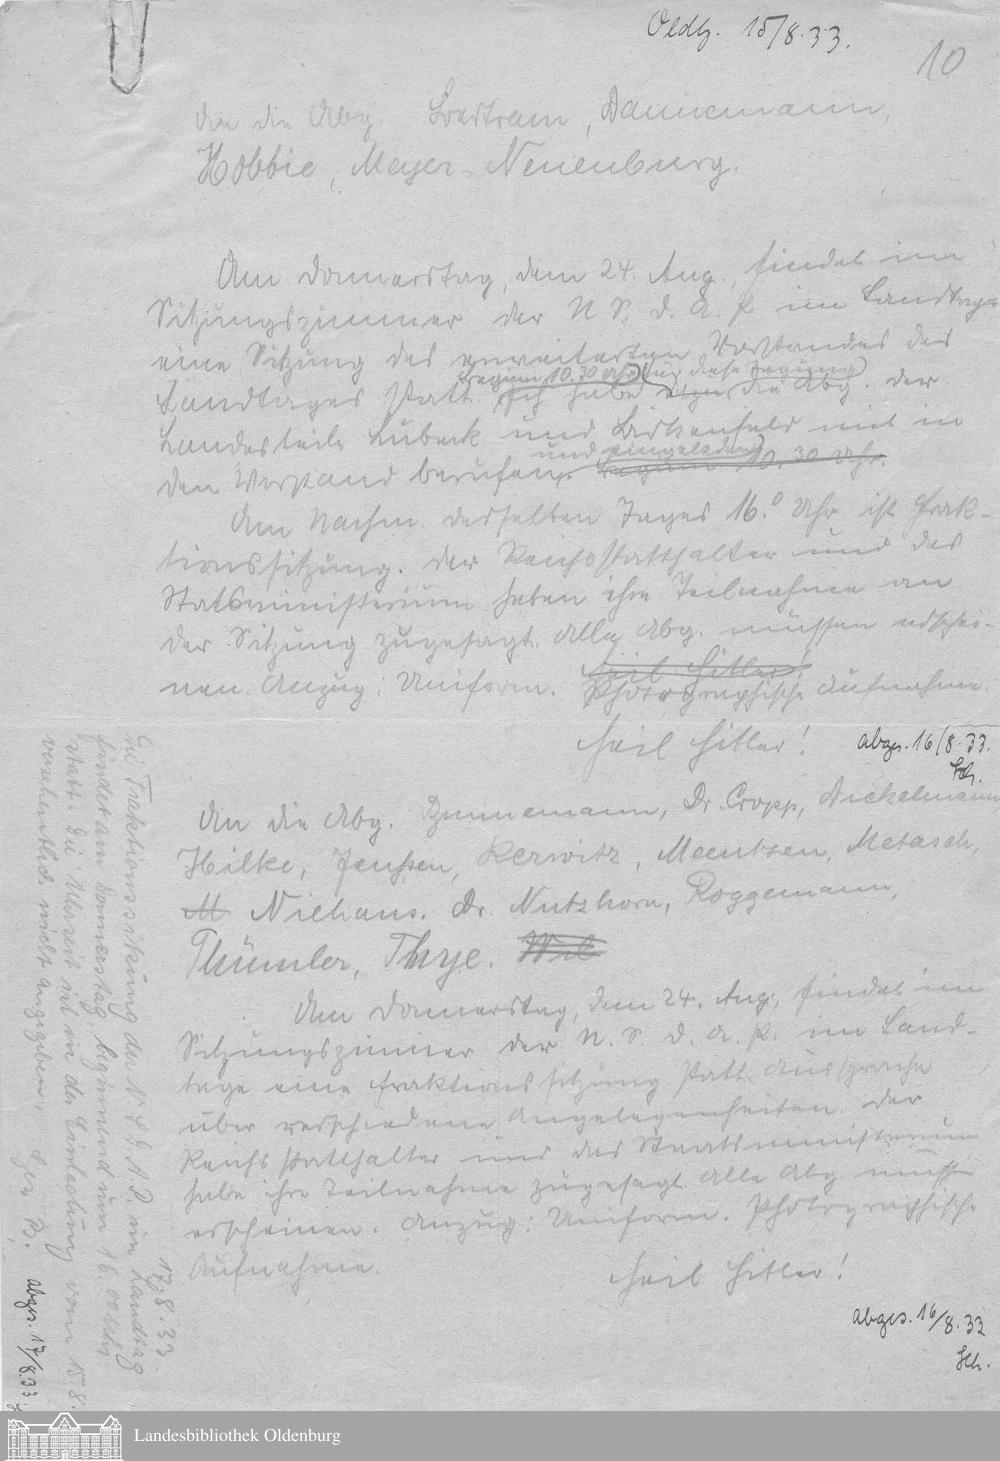 Oldbg. 15/8.33.
10
An die Abg. Bertram, Dannemann,
Hobbie, Meyer-Neuenburg.
Am Donnerstag, dem 24. Aug., findet im
Sitzungszimmer der N.S.D.A.P. im Landtage
eine Sitzung des erweiterten Vorstandes des
Beginn 10.30 Uhr für diese Tagung
Landtages statt. Ich habe die Abg. der
Landesteile Lübeck und Birkenfeld mit in
und eingeladen
den Vorstand berufen. Beginn 10.30 Uhr.
Am Nachm. desselben Tages 16.° Uhr ist Frak-
tionssitzung. Der Reichsstatthalter und das
Statsministerium haben ihre Teilnahme an
der Sitzung zugesagt. Alle Abg. müssen erschei-
nen. Anzug: Uniform. Heil Hitler!
Photographische Aufnahme.
Heil Hitler!
abges. 16/8.33.
Sch.
An die Abg. Brunnemann, Dr. Cropp, Dickelmann
Hilke, Jenssen, Kerwitz, Meentzen, Metasch,
M Niehaus, Dr. Nutzhorn, Roggemann,
Thümler, Thye. Wil
Am Donnerstag, dem 24. Aug., findet im
Sitzungszimmer der N.S.D.A.P. im Land-
tage eine Fraktionssitzung statt. Aussprache
über verschiedene Angelegenheiten. Der
Reichsstatthalter und das Staatsministerium
habe ihre Teilnahme zugesagt. Alle Abg. müss
erscheinen. Anzug: Uniform. Photographische
Aufnahme.
Heil Hitler!
abges. 16/8.33
Sch.
17.8.33
Die Fraktionssitzung der N.S.D.A.P. im Landtag
findet am Donnerstag, beginnend um 16.00 Uhr
statt. Die Uhrzeit ist in der Einladung vom 15.8.
versehentlich nicht angegeben.
Gez. B.
abges. 17/8.33
Landesbibliothek Oldenburg